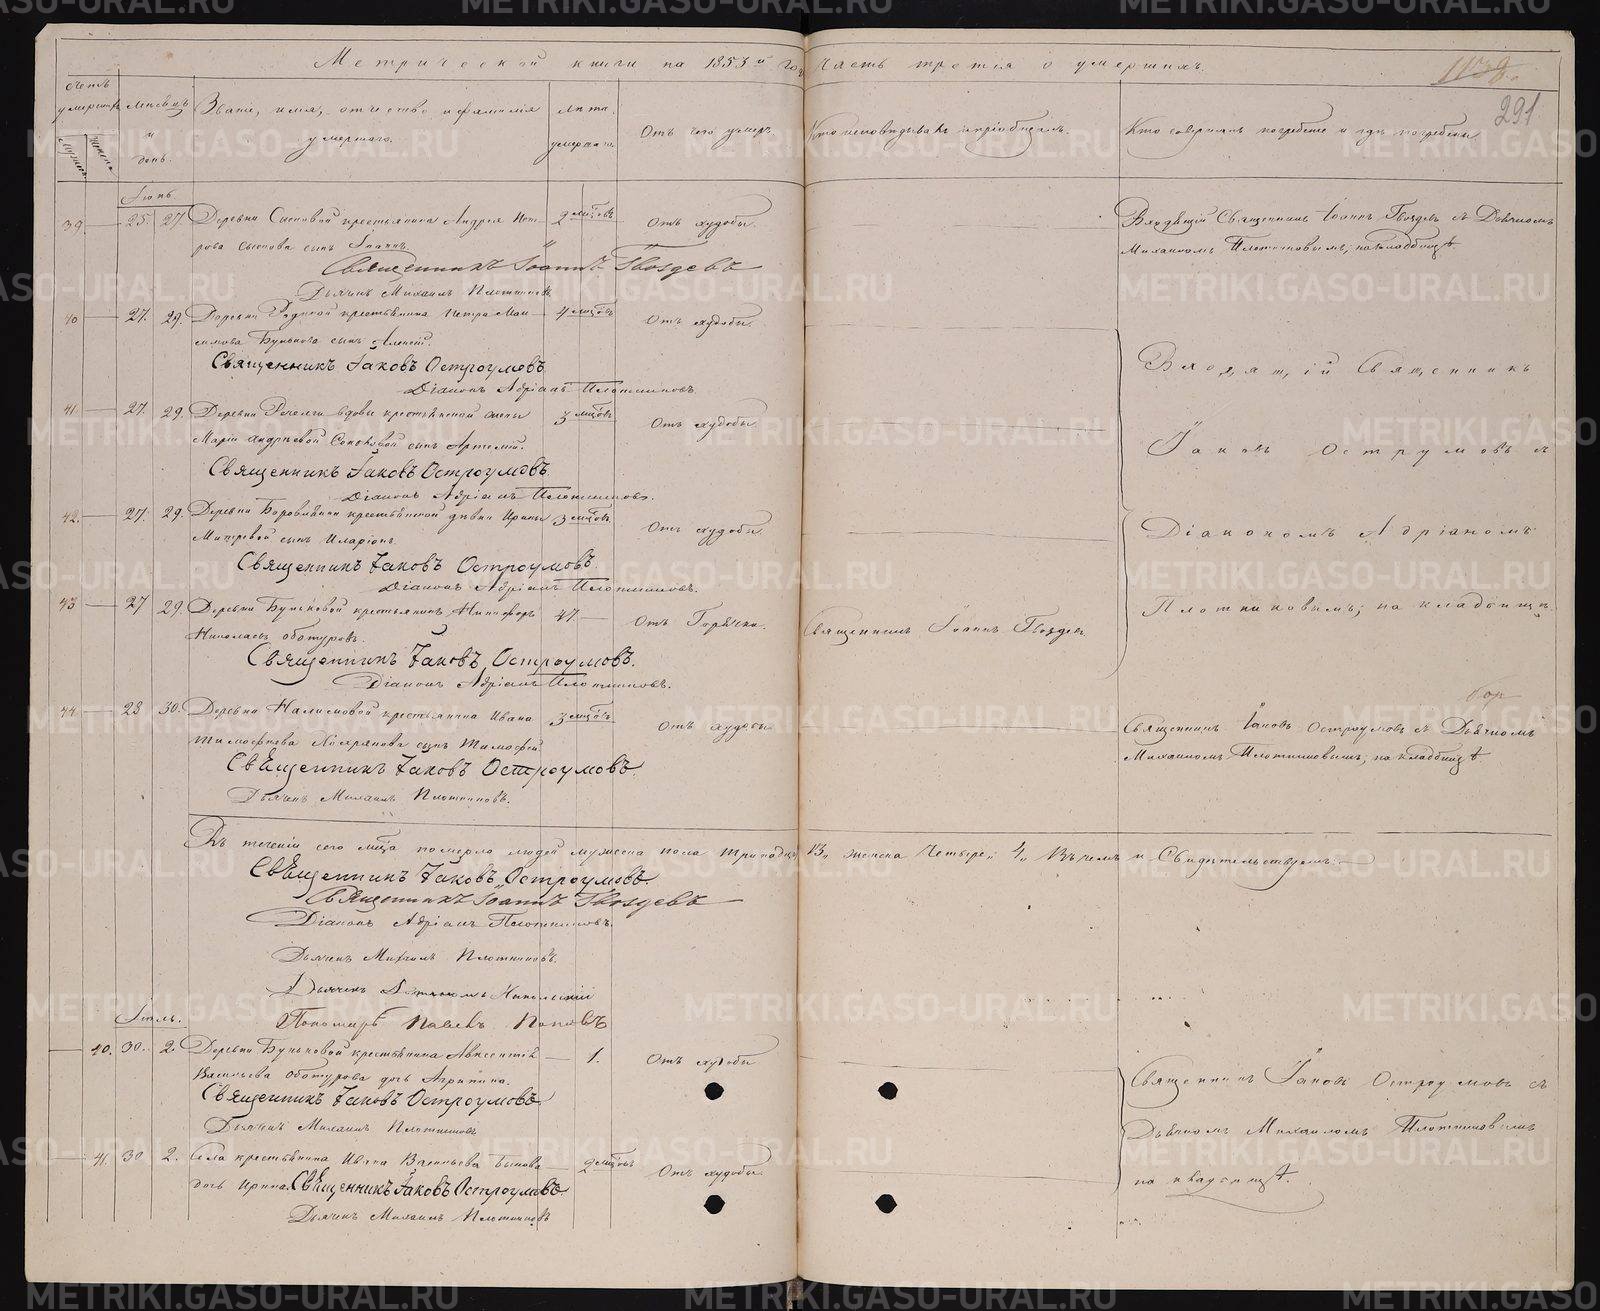 Метрической книги на 1853й годъ Часть третія о умершихъ.
291
Счетъ умершихъ
Мѣсяцъ и день.
Званіе, имя, отчество и фамилія умершаго.
Лѣта умершаго
Отъ чего умеръ.
Кто исповѣдывалъ и пріобщалъ.
Кто совершалъ погребеніе и гдѣ погребены
Іюнь
39 25. 27. Деревни крестьянина Андрея
2 мѣсцовъ
Отъ худобы.
сынъ Іоаннъ.
Священникъ Іоаннъ Гвоздевъ
Дьячекъ Михаилъ Плотниковъ
Священникъ Іоаннъ Гвоздевъ съ Дьячкомъ
Михаиломъ Плотниковымъ, на кладбищѣ
40 27. 29. Деревни крестьянина Петра
4 мѣсцовъ
Отъ худобы.
сынъ Алексѣй.
Священникъ Іаковъ Остроумовъ
Діаконъ Адріанъ Плотниковъ.
41 27. 29. Деревни вдовы крестьянской жены
3 мѣсцовъ
Отъ худобы
Маріи Андреевой сынъ Артемій.
Священникъ Іаковъ Остроумовъ
Діаконъ Адріанъ Плотниковъ.
42. 27. 29. Деревни крестьянской дѣвки Ирины
3 мѣсцовъ
Отъ худобы
сынъ Иларіонъ.
Священникъ Іаковъ Остроумовъ
Діаконъ Адріанъ Плотниковъ.
43 27 29. Деревни Буньковой крестьянинъ Никифоръ
47.
Отъ Горячки.
Священникъ Іоаннъ Гвоздевъ.
Николаевъ Оботуровъ.
Священникъ Іаковъ Остроумовъ.
Діаконъ Адріанъ Плотниковъ.
Священникъ
Іаковъ Остроумовъ съ
Діакономъ Адріаномъ
Плотниковымъ; на кладбищѣ.
44 28 30. Деревни Налимовой крестьянина Ивана
3 мѣсцовъ
Отъ худобы
Тимофеева сынъ Тимофей
Священникъ Іаковъ Остроумовъ.
Дьячекъ Михаилъ Плотниковъ.
Священникъ Іаковъ Остроумовъ съ Дьячкомъ
Михаиломъ Плотниковымъ, на кладбищѣ
Въ теченіи сего мѣсца померло людей мужеска пола тринадцать 13, женска Четыре 4, Въ чемъ и Свидѣтельствуемъ.
Священникъ Іаковъ Остроумовъ.
Священникъ Іоаннъ Гвоздевъ
Діаконъ Адріанъ Плотниковъ.
Дьячекъ Михаилъ Плотниковъ.
Дьячекъ Никольскій
Пономарь Павелъ Поповъ
Іюль.
40. 30. 2. Деревни Буньковой крестьянина Авксентія
1.
Отъ худобы
Васильева Оботурова дочь Агрипина.
Священникъ Іаковъ Остроумовъ.
Дьячекъ Михаилъ Плотниковъ
41. 30 2. Села крестьянина Ивана Васильева
2 мѣсцовъ
Отъ худобы.
дочь Ирина. Священникъ Іаковъ Остроумовъ
Дьячекъ Михаилъ Плотниковъ
Священникъ Іаковъ Остроумовъ съ
Дьячкомъ Михаиломъ Плотниковымъ
на кладбищѣ.
METRIKI.GASO-URAL.RU